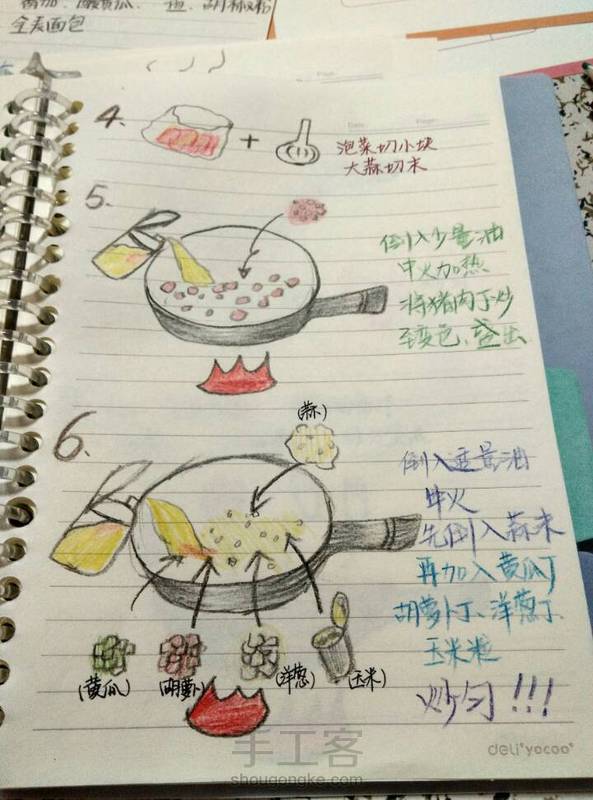 全麦面包
4.
+
泡菜切小块
大蒜切末
5.
倒入少量油
中火加热
将猪肉丁炒
至变色、盛出
6.
(蒜)
倒入适量油
中火
先倒入蒜末
再加入黄瓜丁
胡萝卜丁、洋葱丁、
玉米粒
炒匀!!!
(黄瓜)
(胡萝卜)
(洋葱)
(玉米)
deli yocoo
手工客
shougongke.com